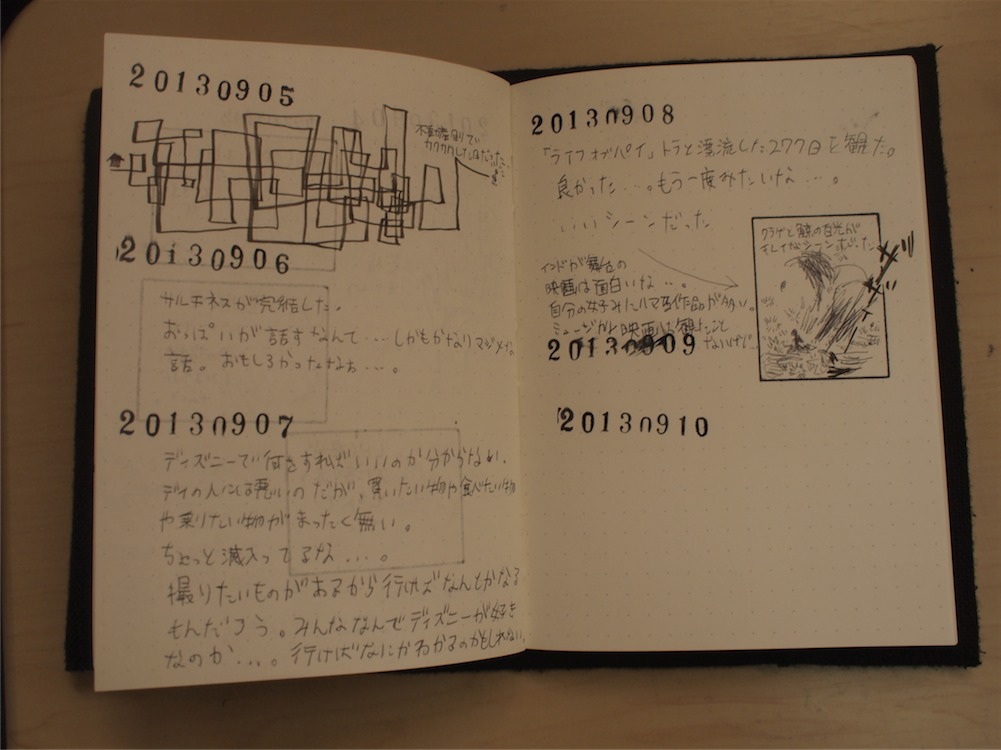 20130905
カクカクした
20130906
サルチネスが完結した。
おっぱいが話すなんて…しかもかなりマジメな
話。おもしろかったなぁ…。
20130907
ディズニーで何をすればいいのか分からない。
デイの人には悪いのだが、買いたい物や食べたい物
や乗りたい物がまったく無い。
ちょっと滅入ってるな…。
撮りたいものがあるから行けばなんとかなる
もんだろう。みんななんでディズニーが好き
なのか…。行けばなにかわかるのかもしれない。
20130908
「ライフオブパイ」トラと漂流した277日を観た。
良かった…。もう一度みたいな…。
いいシーンだった
クラゲと鯨の発光が
キレイなシーンだった
インドが舞台の
映画は面白いな…。
自分の好みにハマる作品が多い。
ミュージカル映画は観たこと
ないけど
20130909
20130910